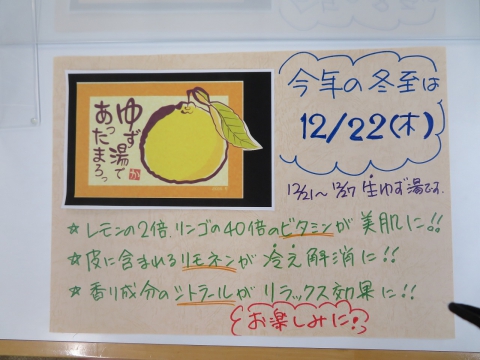 ゆず湯で
あったまろっ
今年の冬至は
12/22(木)
12/21～12/27 生ゆず湯です.
☆レモンの2倍、リンゴの40倍のビタミンが美肌に!!
☆皮に含まれるリモネンが冷え解消に!!
☆香り成分のシトラールがリラックス効果に!!
お楽しみに!